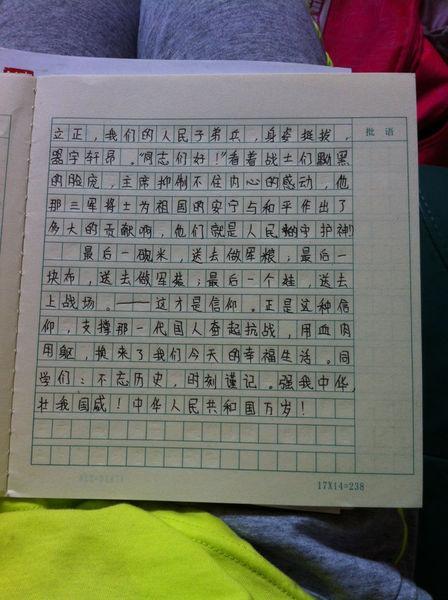 立正，我们的人民子弟兵，身姿挺拔，
器宇轩昂。“同志们好！”看着战士们黝黑
的脸庞，主席抑制不住内心的感动，他
那三军将士为祖国的安宁与和平作出了
多大的贡献啊，他们就是人民的守护神！
最后一碗米，送去做军粮；最后一
块布，送去做军装；最后一个娃，送去
上战场。——这才是信仰。正是这种信
仰，支撑那一代国人奋起抗战，用血肉
用躯，换来了我们今天的幸福生活。同
学们：不忘历史，时刻谨记。强我中华，
壮我国威！中华人民共和国万岁！
批语
17X14=238